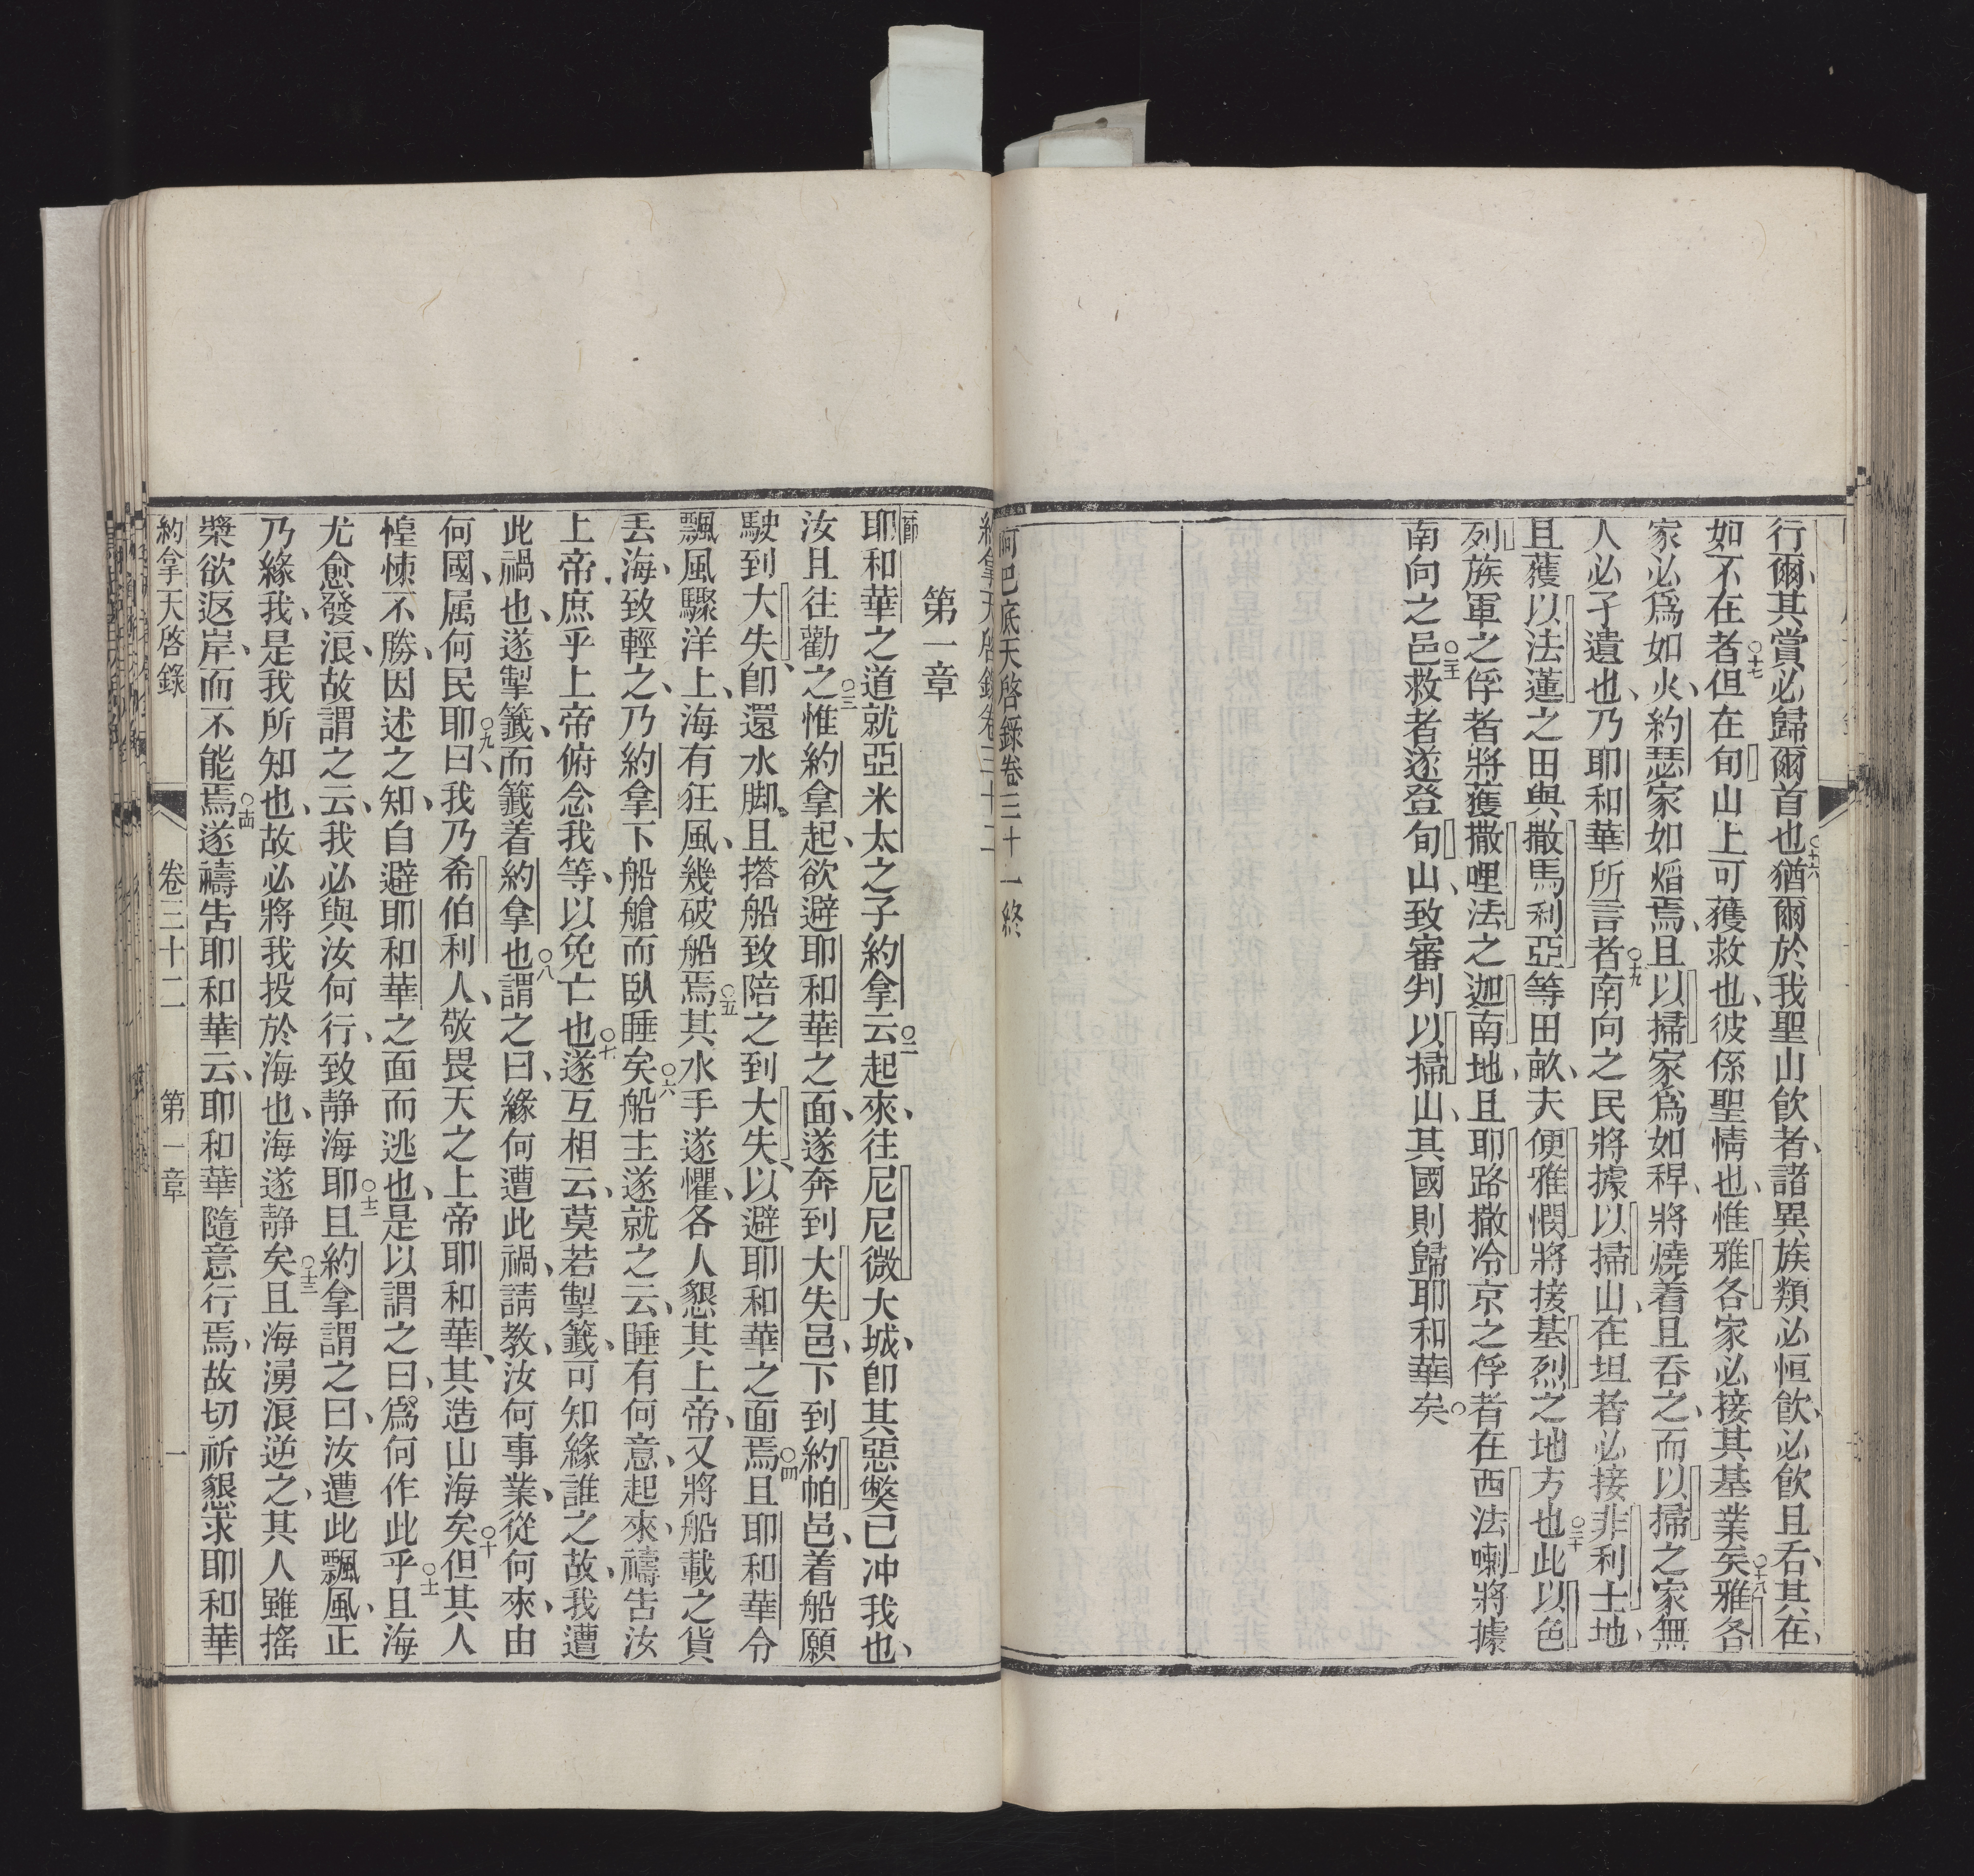 行爾、其賞必歸爾首也○十六猶爾於我聖山飲者、諸異族類必恒飲、必飲且吞、其在、
如不在者○十七但在旬山上可獲救也、彼係聖情也、惟雅各家必接其基業矣○十八雅各
家必爲如火、約瑟家如熖焉、且以掃家爲如稈、將燒着且吞之、而以掃之家無
人必孑遺也、乃耶和華所言者○十九南向之民將據以掃山、在坦者必接非利士地、
且獲以法蓮之田與撒馬利亞等田畝、夫便雅憫將接基烈之地方也○二十此以色
列族軍之俘者將獲撒哩法之迦南地、且耶路撒冷京之俘者在西法喇將據
南向之邑○二一救者遂登旬山、致審判以掃山、其國則歸耶和華矣○
阿巴底天啓錄卷三十一終
約拿天啓錄卷三十二
第一章
耶和華之道就亞米太之子約拿云○二起來、往尼尼微大城、卽其惡獘已冲我也、
汝且往勸之○三惟約拿起、欲避耶和華之面、遂奔到大失邑、下到約帕邑、着船願
駛到大失、卽還水脚、且搭船致陪之到大失、以避耶和華之面焉○四且耶和華令
飄風驟洋上、海有狂風、幾破船焉○五其水手遂懼、各人懇其上帝、又將船載之貨
丟海、致輕之、乃約拿下船艙而臥睡矣○六船主遂就之云、睡有何意、起來、禱吿汝
上帝、庶乎上帝俯念我等、以免亡也○七遂互相云、莫若掣籤、可知緣誰之故、我遭
此禍也、遂掣籤、而籤着約拿也○八謂之曰、緣何遭此禍、請教、汝何事業、從何來、由
何國、属何民耶○九曰、我乃希伯利人、敬畏天之上帝耶和華、其造山海矣○十但其人
惶悚不勝、因述之、知自避耶和華之面而逃也、是以謂之曰、爲何作此乎○十一且海
尤愈發浪、故謂之云、我必與汝何行、致静海耶○十二且約拿謂之曰、汝遭此飄風、正
乃緣我、是我所知也、故必將我投於海也、海遂静矣○十三且海湧浪逆之、其人雖搖
槳欲返岸、而不能焉○十四遂禱吿耶和華云、耶和華隨意行焉、故切祈懇求耶和華
約拿天啓錄 卷三十二 第一章 一